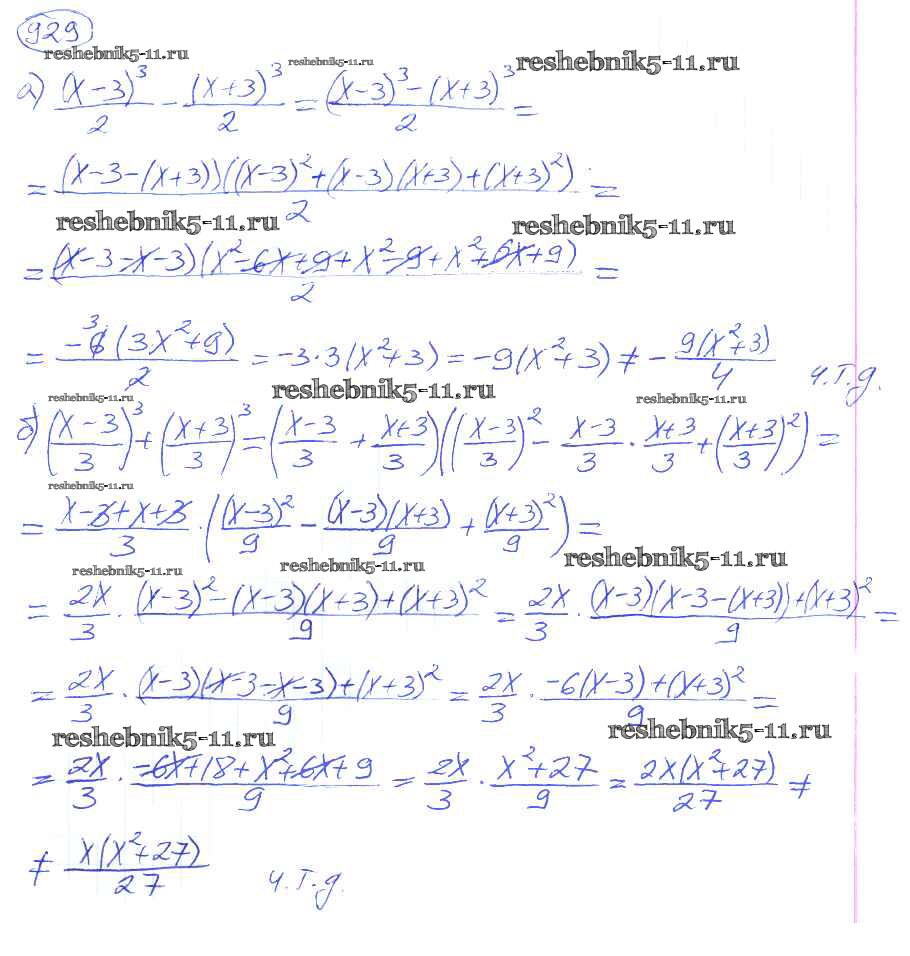 929
reshebnik5-11.ru reshebnik5-11.ru reshebnik5-11.ru
а) (x-3)³/2 - (x+3)³/2 = ((x-3)³-(x+3)³)/2 =
= (x-3-(x+3))((x-3)²+(x-3)(x+3)+(x+3)²)/2 =
reshebnik5-11.ru reshebnik5-11.ru
= (x-3-x-3)(x²-6x+9+x²-9+x²+6x+9)/2 =
= -6³(3x²+9)/2 = -3·3(x²+3) = -9(x²+3) ≠ -9(x²+3)/4 ч.т.д.
reshebnik5-11.ru reshebnik5-11.ru reshebnik5-11.ru
б) ((x-3)/3)³+((x+3)/3)³=((x-3)/3+(x+3)/3)(((x-3)/3)²-(x-3)/3·(x+3)/3+((x+3)/3)²)=
reshebnik5-11.ru
= (x-3+x+3)/3·((x-3)²/9-(x-3)(x+3)/9+(x+3)²/9)=
reshebnik5-11.ru reshebnik5-11.ru reshebnik5-11.ru
= 2x/3·((x-3)²-(x-3)(x+3)+(x+3)²)/9 = 2x/3·((x-3)(x-3-(x+3))+(x+3)²)/9 =
= 2x/3·((x-3)(x-3-x-3)+(x+3)²)/9 = 2x/3·(-6(x-3)+(x+3)²)/9 =
reshebnik5-11.ru reshebnik5-11.ru
= 2x/3·(-6x+18+x²+6x+9)/9 = 2x/3·(x²+27)/9 = 2x(x²+27)/27 ≠
≠ x(x²+27)/27 ч.т.д.